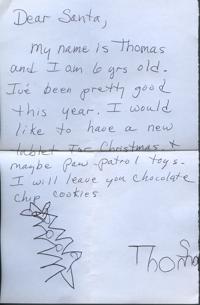 Dear Santa,
My name is Thomas
and I am 6 yrs old.
I've been pretty good
this year. I would
like to have a new
tablet for Christmas &
maybe paw-patrol toys.
I will leave you chocolate
chip cookies
Thomas